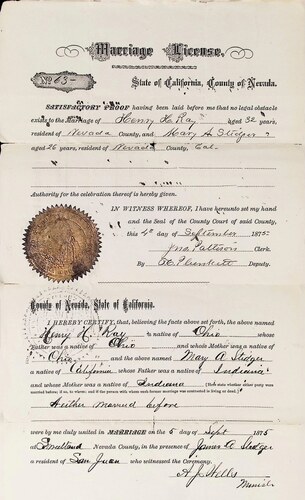 Marriage License.
No 63
State of California, County of Nevada.
SATISFACTORY PROOF having been laid before me that no legal obstacle
exists to the Marriage of Henry H. Ray aged 32 years,
resident of Nevada County, and Mary A.
aged 26 years, resident of Nevada County, Cal.
Authority for the celebration thereof is hereby given.
IN WITNESS WHEREOF, I have hereunto set my hand
and the Seal of the County Court of said County,
this 4th day of September 1875
Jno Pattison Clerk.
By Deputy.
County of Nevada, State of California.
I HEREBY CERTIFY, that, believing the facts above set forth, the above named
Henry H. Ray is native of Ohio whose
Father was a native of Ohio and whose Mother was a native of
Ohio and the above named Mary A Sledger
a native of California, whose Father was a native of Indiana
and whose Mother was a native of Indiana
Neither married before
were by me duly united in MARRIAGE on the 5 day of Sept 1875
at Nevada County, in the presence of James A Sledger
a resident of San Juan who witnessed the Ceremony.
Wells
Minister